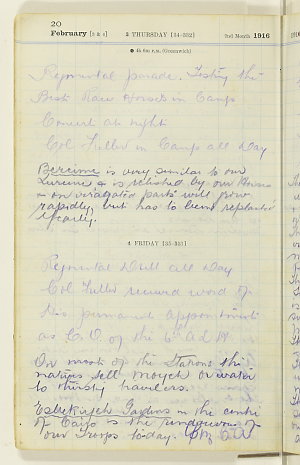 20
February [2 & 4] 3 THURSDAY [34-332] 2nd Month 1916
Regimental parade. Testing the
Best Race Horses in Camp
Concert at night
Col Fuller in Camp all day
Berseime is very similar to our
Lucerne & is relished by our Horses
& on irrigated parts will grow
rapidly, but has to be replanted
yearly.
4 FRIDAY [35-331]
Regimental Drill all day
Col Fuller received word of
his permanent appointment
as C.O. of the 6th A L H
On most of the Stations the
natives sell moyeh or water
to thirsty travellers.
Esbekiyeh Gardens in the centre
of Cairo is the rendezvous of
our Troops today.